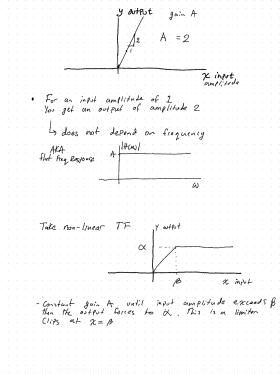 y output
gain A
A = 2
2
1
x input,
amplitude
• For an input amplitude of 1
You get an output of amplitude 2
↳ does not depend on frequency
AKA
flat freq. Response
|H(ω)|
A
ω
Take non-linear TF
y output
α
β
x input
- Constant gain A until input amplitude exceeds β
then the output forces to α. This is a limiter
Clips at x = β